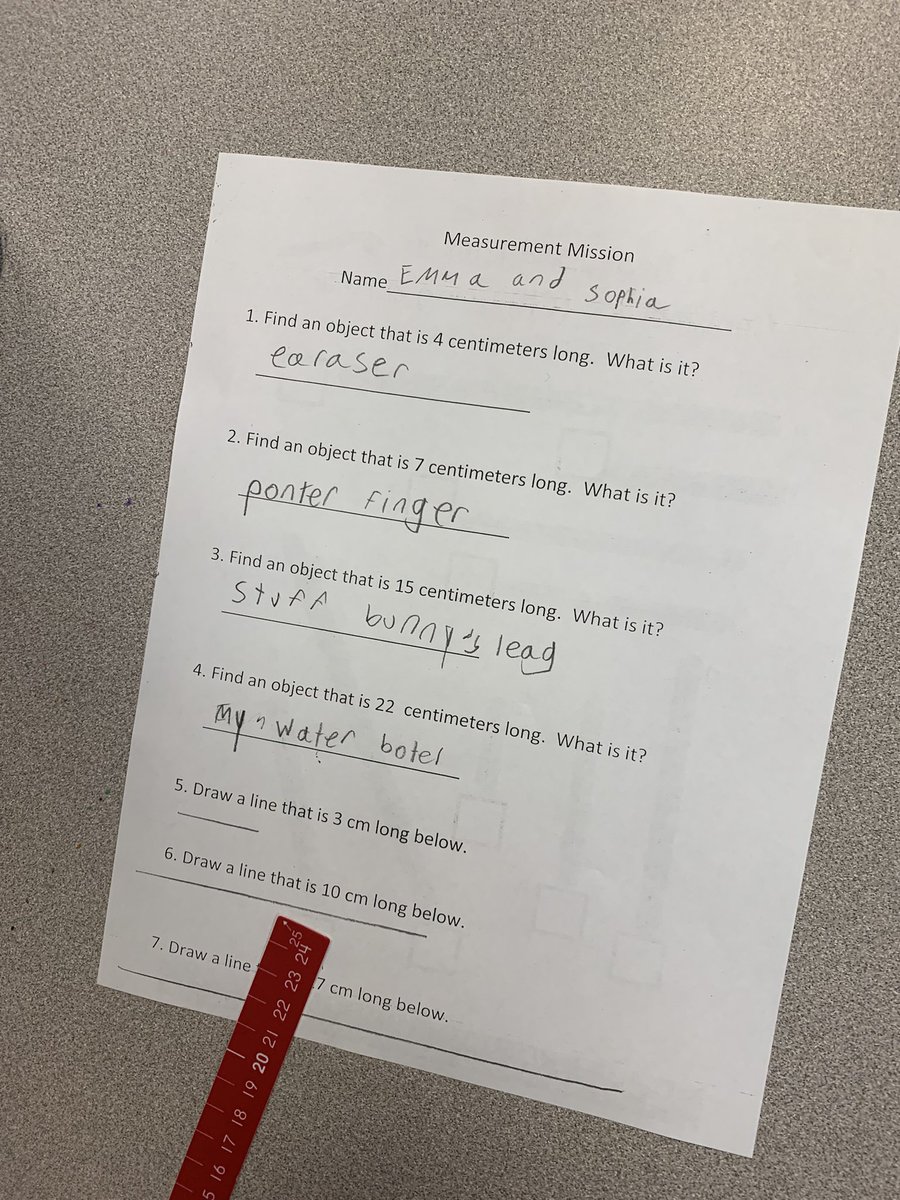 Measurement Mission
Name Emma and Sophia
1. Find an object that is 4 centimeters long. What is it?
earaser
2. Find an object that is 7 centimeters long. What is it?
ponter finger
3. Find an object that is 15 centimeters long. What is it?
Stuff bunny's leag
4. Find an object that is 22 centimeters long. What is it?
My water botel
5. Draw a line that is 3 cm long below.
6. Draw a line that is 10 cm long below.
7. Draw a line 7 cm long below.
5 16 17 18 19 20 21 22 23 24 25